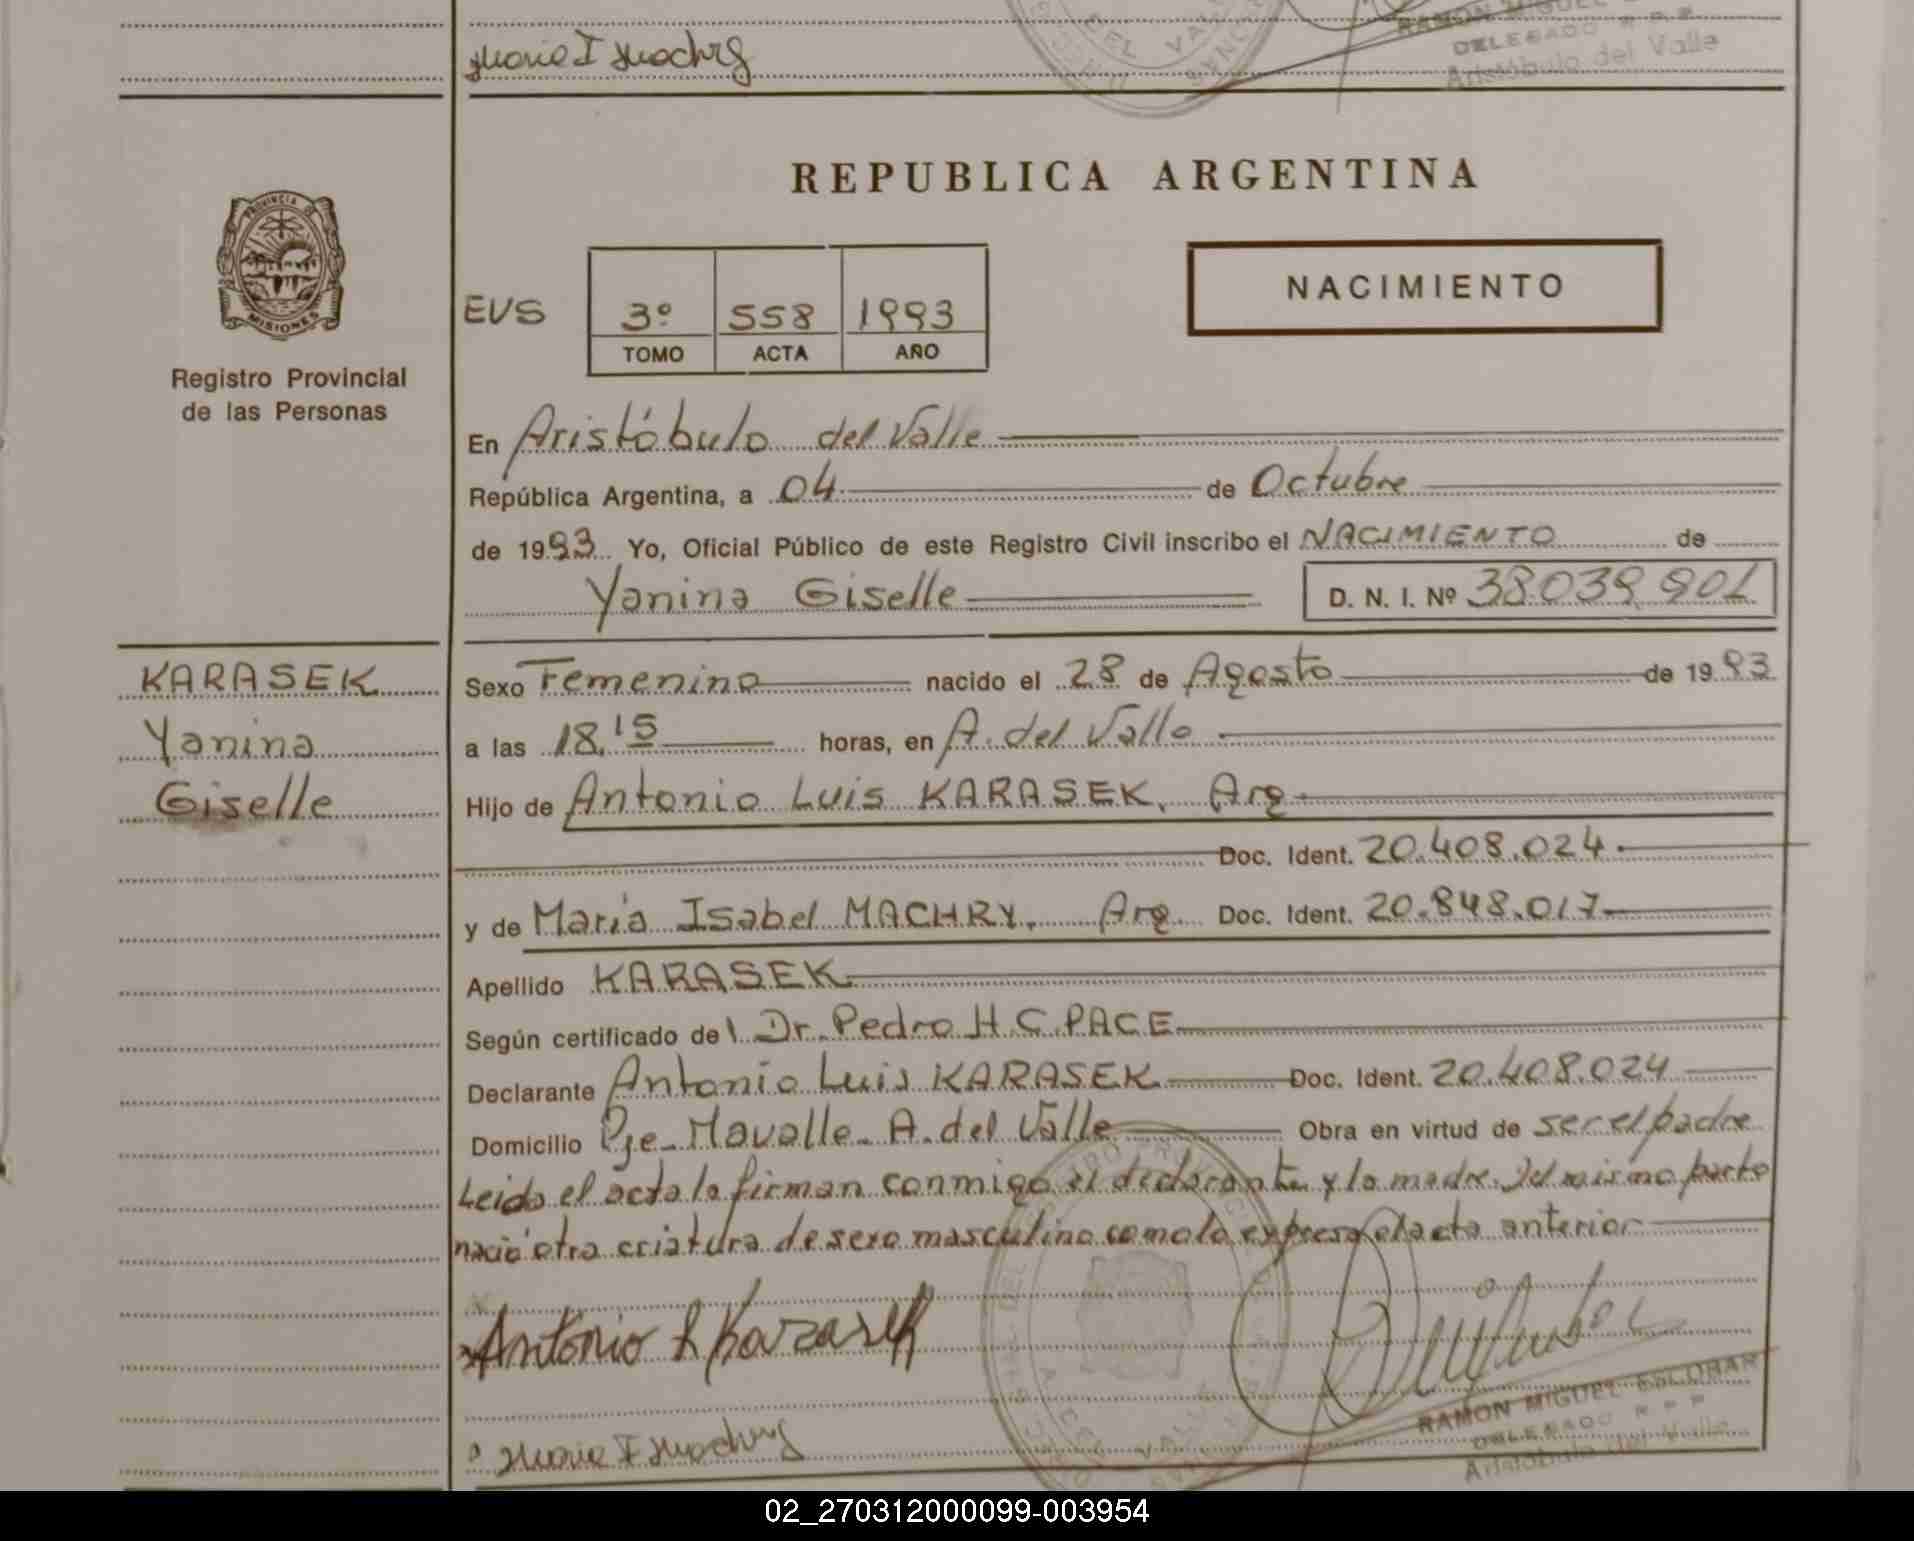 Maria I Machry
DEL VALLE
RAMON MIGUEL
DELEGADO R P P
Aristóbulo del Valle
REPUBLICA ARGENTINA
PROVINCIA DE
MISIONES
Registro Provincial
de las Personas
NACIMIENTO
EVS 3º 558 1993
TOMO ACTA AÑO
En Aristóbulo del Valle
República Argentina, a 04 de Octubre
de 1993 Yo, Oficial Público de este Registro Civil inscribo el NACIMIENTO de
Yanina Giselle D. N. I. Nº 38.039.901
KARASEK
Yanina
Giselle
Sexo Femenino nacido el 28 de Agosto de 1993
a las 18,15 horas, en A. del Valle
Hijo de Antonio Luis KARASEK, Arg
Doc. Ident. 20.408.024
y de María Isabel MACHRY, Arg. Doc. Ident. 20.848.017
Apellido KARASEK
Según certificado del Dr. Pedro H.C. PACE
Declarante Antonio Luis KARASEK Doc. Ident. 20.408.024
Domicilio Pje- Mavalle- A. del Valle Obra en virtud de ser el padre
Leida el acta la firman conmigo el declarante y la madre. Del mismo parto
nació otra criatura de sexo masculino como lo expresa el acta anterior
Antonio L Karasek
Maria I Machry
RAMON MIGUEL ESCOBAR
DELEGADO R P P
Aristóbulo del Valle
02_270312000099-003954